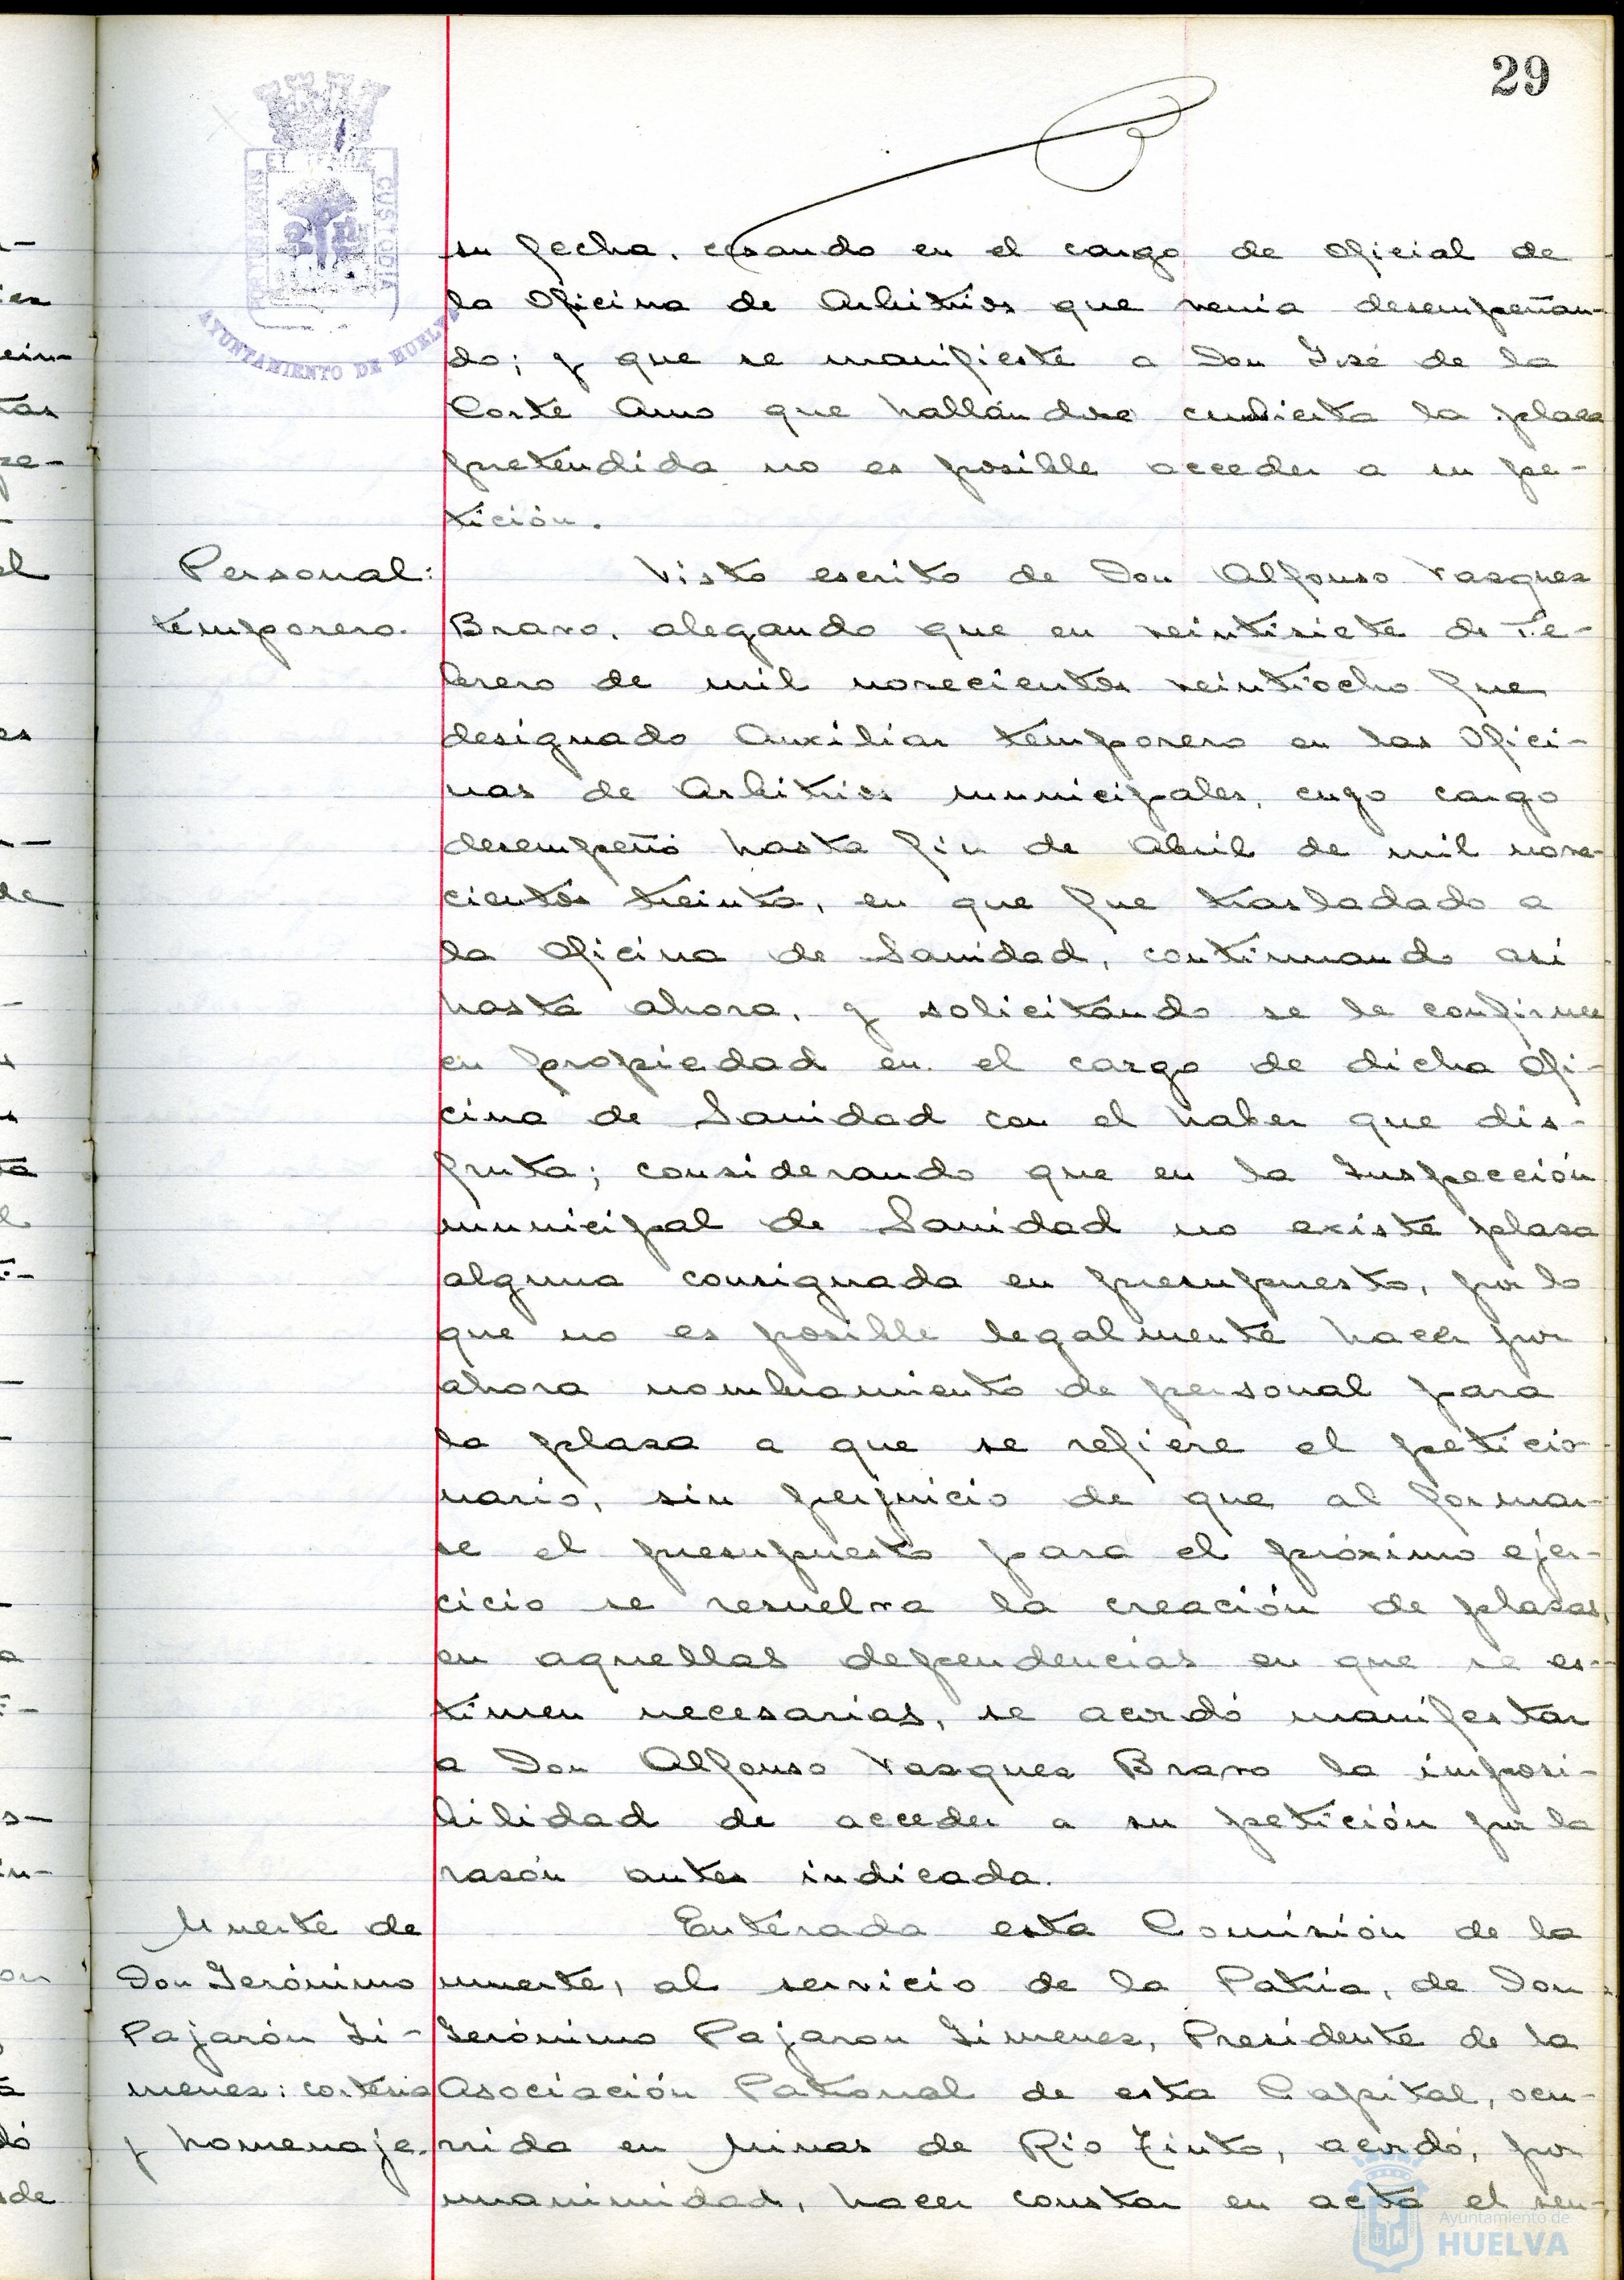 29
su fecha, cesando en el cargo de Oficial de
la Oficina de Arbitrios que venia desempeñan-
do; y que se manifieste a Don José de la
Corte Amo que hallándose cubierta la plaza
pretendida no es posible acceder a su pe-
tición.
Personal:
temporero.
Visto escrito de Don Alfonso Vazquez
Bravo, alegando que en veintisiete de Fe-
brero de mil novecientos veintiocho fue
designado Auxiliar temporero en las Ofici-
nas de Arbitrios municipales, cuyo cargo
desempeñó hasta fin de Abril de mil nove-
cientos treinta, en que fue trasladado a
la Oficina de Sanidad, continuando asi
hasta ahora, y solicitando se le confirme
en propiedad en el cargo de dicha Ofi-
cina de Sanidad con el haber que dis-
fruta; considerando que en la Inspección
municipal de Sanidad no existe plaza
alguna consignada en presupuesto, por lo
que no es posible legalmente hacer por
ahora nombramiento de personal para
la plaza a que se refiere el peticio-
nario, sin perjuicio de que al formar-
se el presupuesto para el próximo ejer-
cicio se resuelva la creación de plazas,
en aquellas dependencias en que se es-
timen necesarias, se acordó manifestar
a Don Alfonso Vazquez Bravo la imposi-
bilidad de acceder a su petición por la
razón antes indicada.
Muerte de
Don Jerónimo
Pajarón Ji-
menez: cortesia
y homenaje.
Enterada esta Comisión de la
muerte, al servicio de la Patria, de Don
Jerónimo Pajaron Jimenez, Presidente de la
Asociación Patronal de esta Capital, ocu-
rrida en Minas de Rio Tinto, acordó, por
unanimidad, hacer constar en acta el sen-
AYUNTAMIENTO DE HUELVA
CUSTODIA
Ayuntamiento de
HUELVA